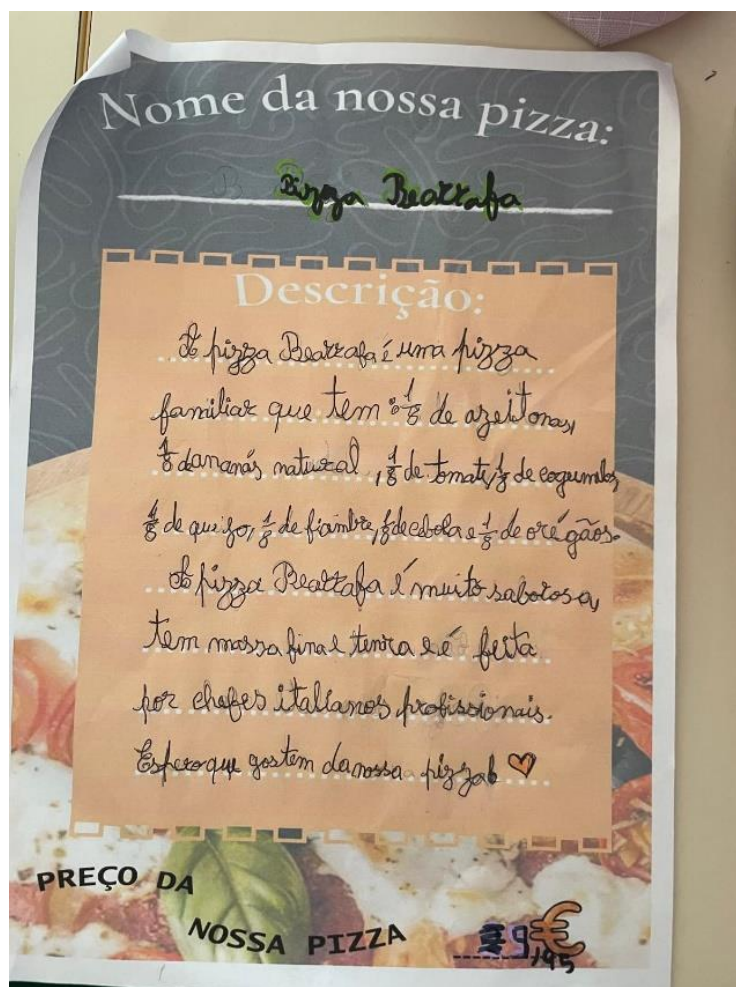 Nome da nossa pizza:
Pizza Beatrafa
Descrição:
A pizza Beatrafa é uma pizza
familiar que tem: 1/8 de azeitonas,
1/8 d'ananás natural, 1/8 de tomate, 1/8 de cogumelos,
1/8 de queijo, 1/8 de fiambre, 1/8 de cebola e 1/8 de orégãos.
A pizza Beatrafa é muito saborosa,
tem massa fina e tenra e é feita
por chefes italianos profissionais.
Espero que gostem da nossa pizza
PREÇO DA
NOSSA PIZZA
9,95 €